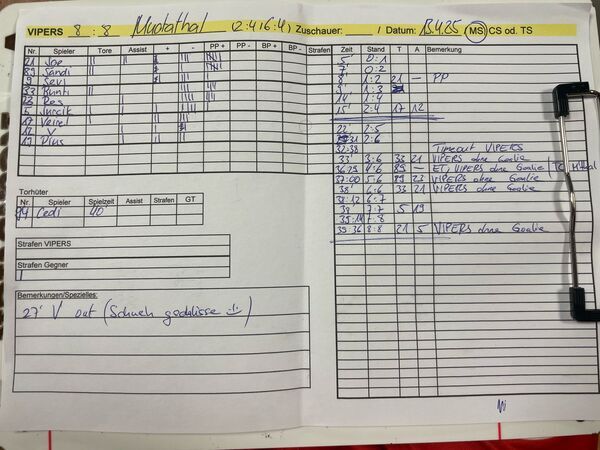 VIPERS 8 : 8 Muotathal (2:4 / 6:4) Zuschauer: / Datum: 13.4.25 MS CS od. TS
Nr. Spieler Tore Assist + - PP + PP - BP + BP - Strafen
21 Joe
89 Sandi
9 Sevi
33 Kunti
23 Res
5 Jurcik
17
12 V
13 Pius
Zeit Stand T A Bemerkung
5' 0:1
7' 0:2
8' 1:2 21 — PP
9' 1:3
14' 1:4
15' 2:4 17 12
22' 2:5
31 2:6
32:38 Timeout VIPERS
33' 3:6 33 21 VIPERS ohne Goalie
36:25 4:6 89 ET, VIPERS ohne Goalie
37:00 5:6 89 23 VIPERS ohne Goalie
38' 6:6 33 21 VIPERS ohne Goalie
38:12 6:7
39 7:7 5 19
39:14 7:8
39:36 8:8 21 5 VIPERS ohne Goalie
Torhüter
Nr. Spieler Spielzeit Assist Strafen GT
94 Cedi 40'
Strafen VIPERS
Strafen Gegner
Bemerkungen/Spezielles:
27' V out (Schueh geschlisse :-)